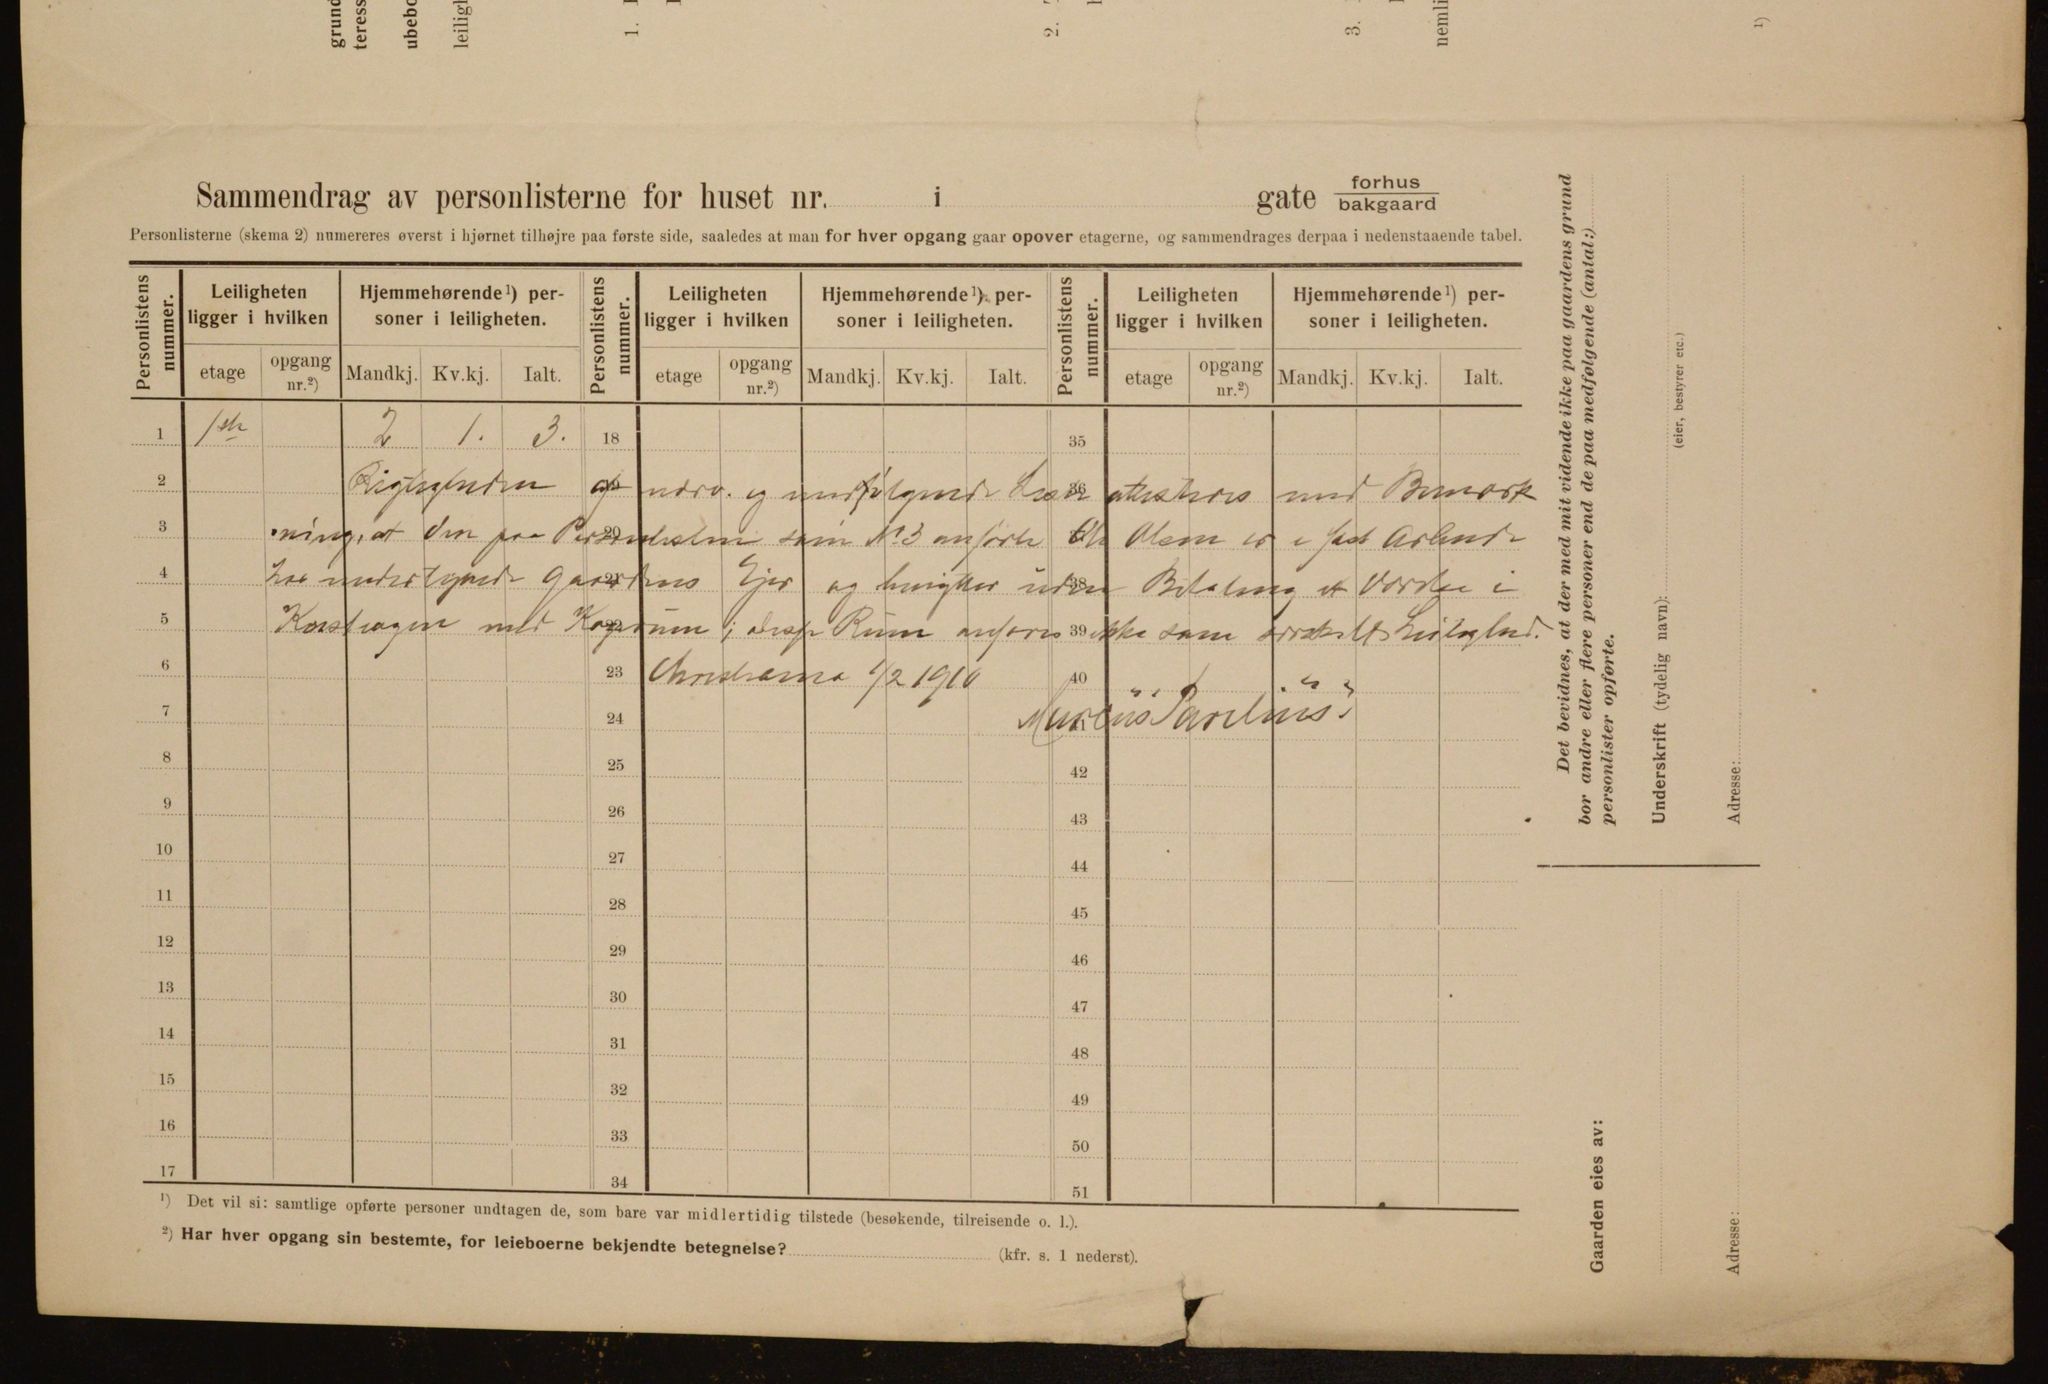 grund
teress
ubebo
leiligh
1.
2.
3.
nemli
1)
Sammendrag av personlisterne for huset nr. i gate forhus
bakgaard
Personlisterne (skema 2) numereres øverst i hjørnet tilhøjre paa første side, saaledes at man for hver opgang gaar opover etagerne, og sammendrages derpaa i nedenstaaende tabel.
Personlistens nummer. Leiligheten ligger i hvilken Hjemmehørende 1) personer i leiligheten. Personlistens nummer. Leiligheten ligger i hvilken Hjemmehørende 1) personer i leiligheten. Personlistens nummer. Leiligheten ligger i hvilken Hjemmehørende 1) personer i leiligheten.
etage opgang nr.2) Mandkj. Kv.kj. Ialt. etage opgang nr.2) Mandkj. Kv.kj. Ialt. etage opgang nr.2) Mandkj. Kv.kj. Ialt.
1 1ste 2 1. 3. 18 35
2 Rigtigheden af nærv. og medfølgende Liste 36 attesteres med Bemærk
3 ning, at den paa Personlisten som No 3 anførte Ole Olsen er i fast Arbeide
4 hos undertegnede Gaardens Ejer og benytter uden 38 Betaling et Værelse i
5 med 22 Rum anføres 39 ikke som særskilt Leilighed.
6 23 Christiania 1/2 1910 40
7 24 Marcus Parelius
8 25 42
9 26 43
10 27 44
11 28 45
12 29 46
13 30 47
14 31 48
15 32 49
16 33 50
17 34 51
1) Det vil si: samtlige opførte personer undtagen de, som bare var midlertidig tilstede (besøkende, tilreisende o. l.).
2) Har hver opgang sin bestemte, for leieboerne bekjendte betegnelse? (kfr. s. 1 nederst).
Det bevidnes, at der med mit vidende ikke paa gaardens grund
bor andre eller flere personer end de paa medfølgende (antal:)
personlister opførte.
Underskrift (tydelig navn):
(eier, bestyrer etc.)
Adresse:
Gaarden eies av:
Adresse: